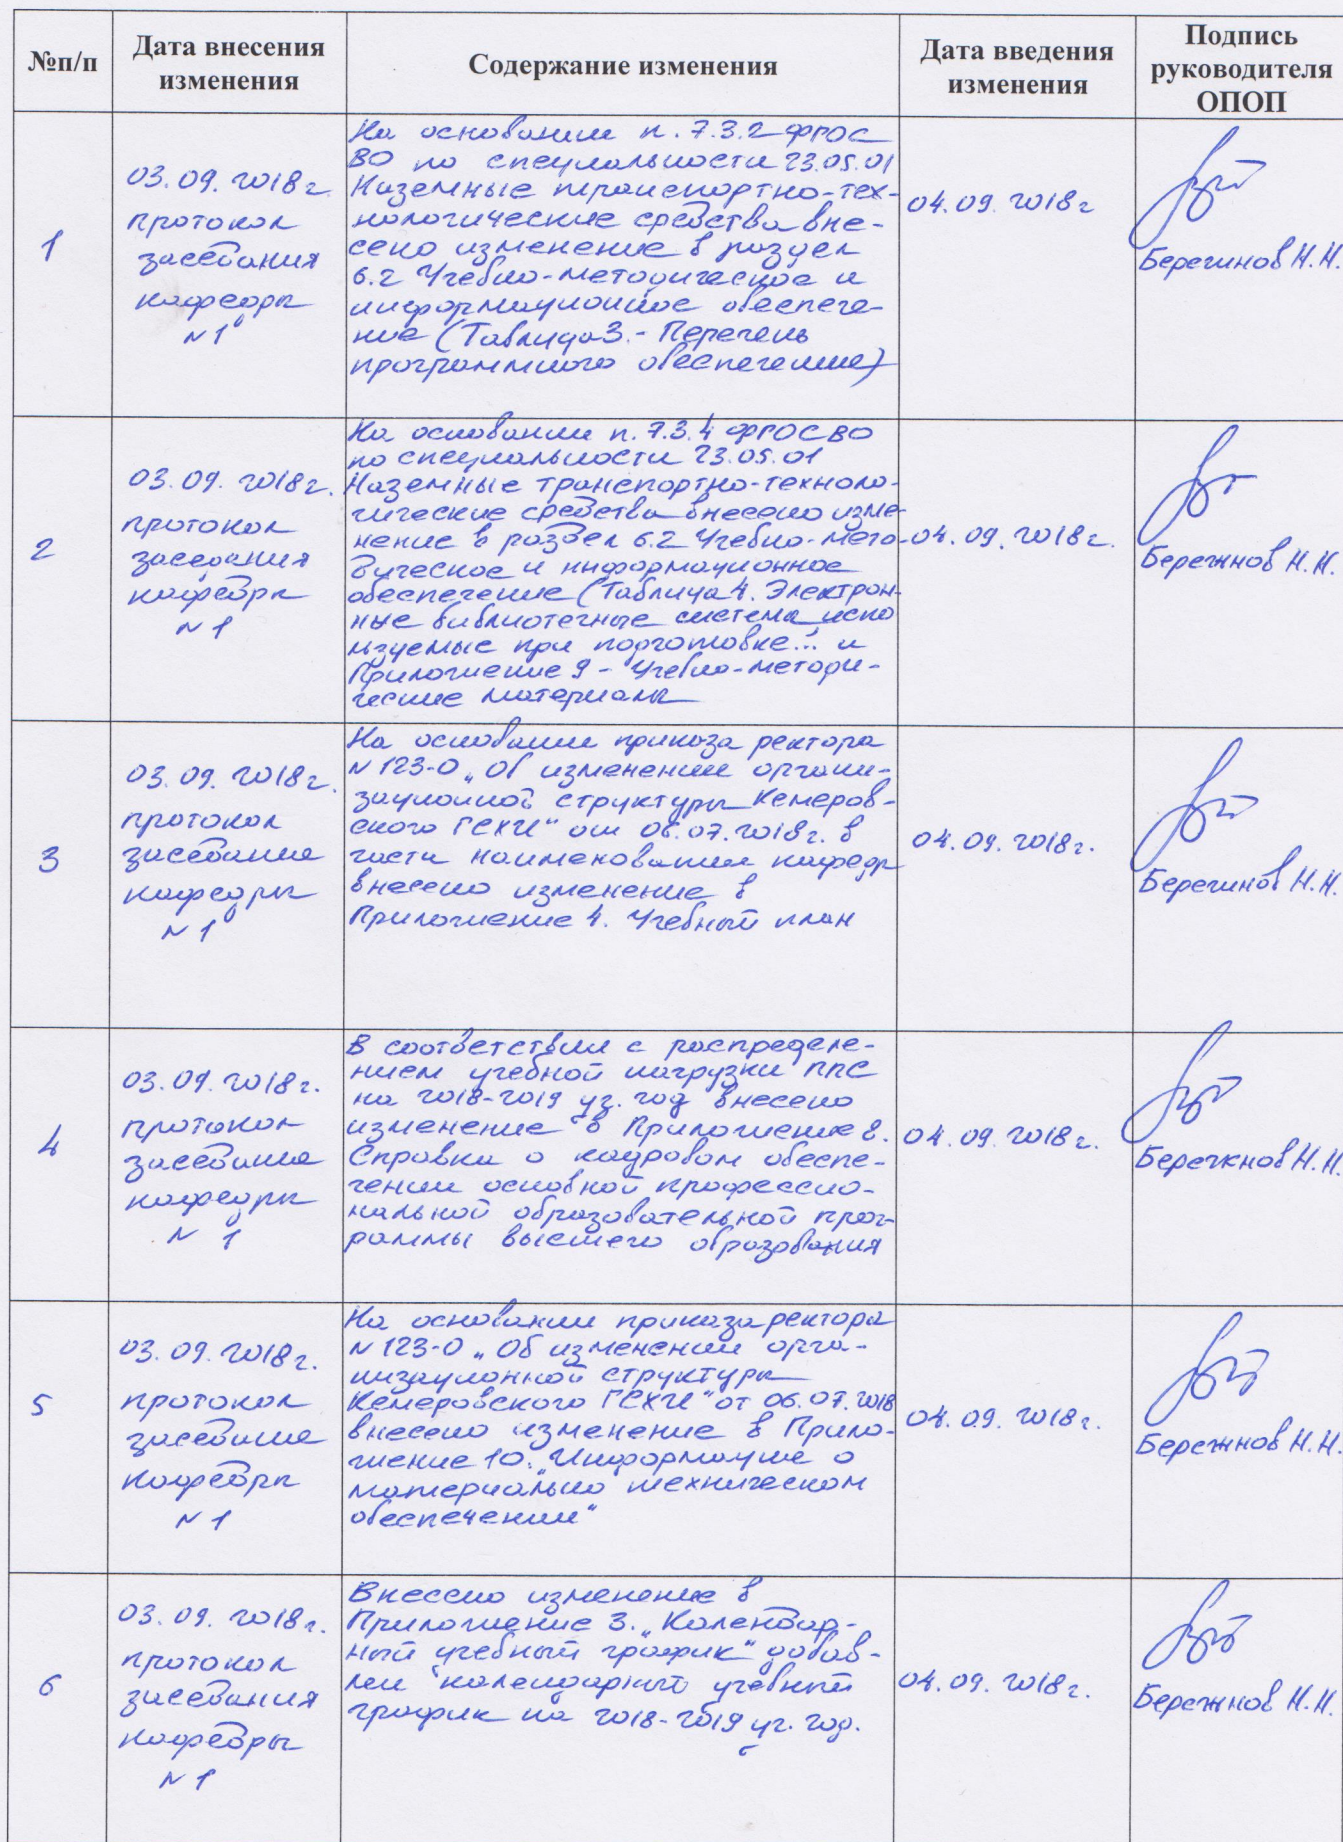 №п/п
Дата внесения
изменения
Содержание изменения
Дата введения
изменения
Подпись
руководителя
ОПОП
1
03.09.2018г.
протокол
заседания
кафедры
№1
На основании п. 7.3.2 ФГОС
ВО по специальности 23.05.01
Наземные транспортно-тех-
нологические средства вне-
сено изменение в раздел
6.2 Учебно-методическое и
информационное обеспече-
ние (Таблица 3.- Перечень
программного обеспечения)
04.09.2018г
Бережнов Н.Н.
2
03.09.2018г.
протокол
заседания
кафедры
№1
На основании п. 7.3.4 ФГОС ВО
по специальности 23.05.01
Наземные транспортно-техноло-
гические средства внесено изме-
нение в раздел 6.2 Учебно-мето-
дическое и информационное
обеспечение (Таблица 4. Электрон-
ные библиотечные система, испо
льзуемые при подготовке... и
Приложение 9 - Учебно-методи-
ческие материалы
04.09.2018г.
Бережнов Н.Н.
3
03.09.2018г.
протокол
заседания
кафедры
№1
На основании приказа ректора
№123-О „Об изменении органи-
зационной структуры Кемеров-
ского ГСХИ“ от 06.07.2018г. в
части наименования кафедр
внесено изменение в
Приложение 4. Учебный план
04.09.2018г.
Бережнов Н.Н.
4
03.09.2018г.
протокол
заседания
кафедры
№1
В соответствии с распределе-
нием учебной нагрузки ППС
на 2018-2019 уч. год внесено
изменение в Приложение 8.
Справка о кадровом обеспе-
чении основной профессио-
нальной образовательной прог-
раммы высшего образования
04.09.2018г.
Бережнов Н.Н.
5
03.09.2018г.
протокол
заседания
кафедры
№1
На основании приказа ректора
№123-О „Об изменении орга-
низационной структуры
Кемеровского ГСХИ“ от 06.07.2018
внесено изменение в Прило-
жение 10. „Информация о
материально техническом
обеспечении“
04.09.2018г.
Бережнов Н.Н.
6
03.09.2018г.
протокол
заседания
кафедры
№1
Внесено изменение в
Приложение 3. „Календар-
ный учебный график“ добав-
лен календарный учебный
график на 2018-2019 уч. год.
04.09.2018г.
Бережнов Н.Н.